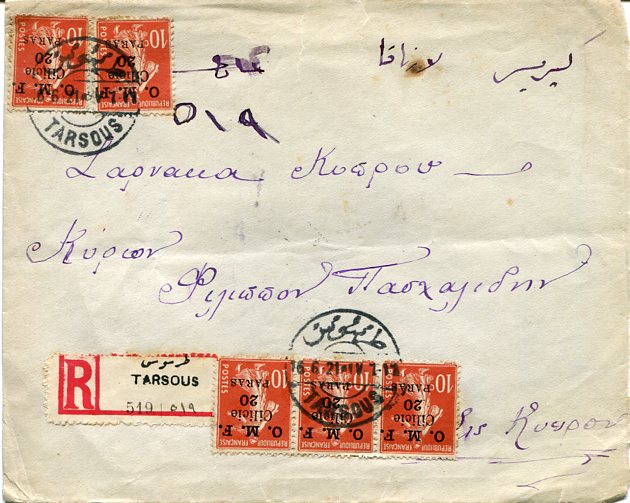 10 POSTES RÉPUBLIQUE FRANÇAISE O. M. F. Cilicie 20 PARAS
10 POSTES RÉPUBLIQUE FRANÇAISE O. M. F. Cilicie 20 PARAS
طرسوس
TARSOUS
٥١٩
Λαρνακα Κυπρου
Κύριον
Φιλιππον Πασχαλιδην
طرسوس
16.6.21
TARSOUS
R
طرسوس
TARSOUS
519 ٥١٩
10 POSTES RÉPUBLIQUE FRANÇAISE O. M. F. Cilicie 20 PARAS
10 POSTES RÉPUBLIQUE FRANÇAISE O. M. F. Cilicie 20 PARAS
10 POSTES RÉPUBLIQUE FRANÇAISE O. M. F. Cilicie 20 PARAS
εις Κυπρον